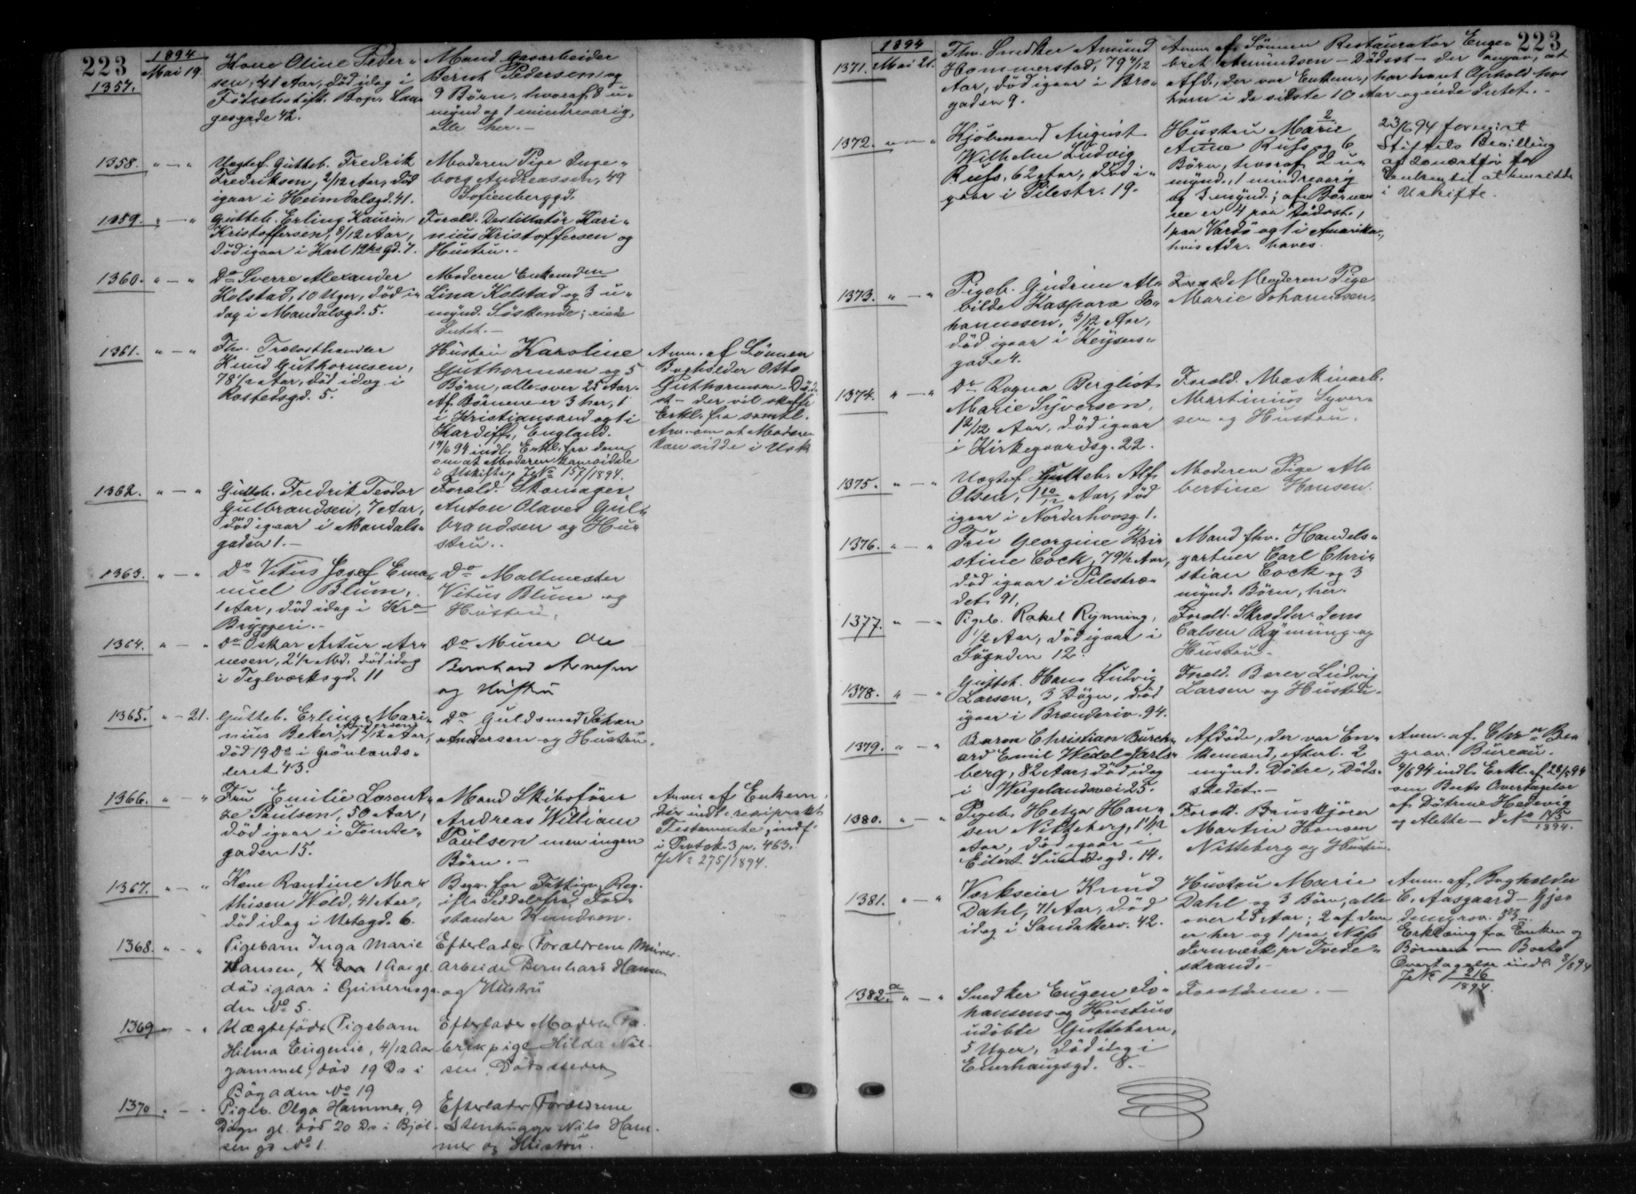 223
1894
1357.
Mai 19.
Kone Oline Peder-
sen, 41 Aar, död idag i
Födselsstift. Bop. Lan-
gesgade 42.
Mand Gasarbeider
Bernt Pedersen og
9 Börn, hvoraf 8 u-
mynd og 1 mindreaarig,
alle her.-
1358. " - "
Uægtef. Gutteb. Fredrik
Fredriksen, 2/12 Aar, död
igaar i Heimdalsgd. 41.
Moderen Pige Inge-
borg Andreassen, 49
Sofienberggd.
1359. " - "
Gutteb. Erling Kaurin
Kristoffersen, 8/12 Aar,
död igaar i Karl 12tes gd. 7.
Foræld. Destillatör Kari-
nius Kristoffersen og
Hustru.
1360. " - "
Do Sverre Alexander
Kolstad, 10 Uger, död i-
dag i Mandalsgd. 5.
Moderen Enkemden
Lina Kolstad og 3 u-
mynd. Söskende; eiede
Intet.-
1361. " - "
Fhv. Trælasthandler
Knud Guthormsen,
78 1/2 Aar, död idag i
Rostedsgd. 5.
Hustru Karoline
Guthormsen og 5
Börn, alle over 25 Aar.
Af Börnene er 3 her, 1
i Kristiansand og 1 i
Kardiff, England.
19/6 94 indl. Erkl. fra dem
om at Moderen kan sidde
i Uskifte, J.No 157/1894.
Anm. af Sönnen
Bogholder Otto
Guthormsen - Död-
st. - der vil skaffe
Erkl. fra samtl.
Arv. om at Moderen
kan sidde i Usk
1362. " - "
Gutteb. Fredrik Teodor
Gulbrandsen, 7 Aar,
död igaar i Mandals-
gaden 1.-
Foræld. Skomager
Anton Olaves Gul-
brandsen og Hus-
tru.
1363. " - "
Do Vitus Josef Ema-
nuel Blum,
1 Aar, död idag i Kra
Bryggeri.-
Do Maltmester
Vitus Blum og
Hustru.
1364. " - "
Do Oskar Artur Ar-
nesen, 2 1/2 Md. död idag
i Teglværksgd. 11
Do Murer Ole
Bernhard Arnesen
og Hustru
1365. " - 21.
Gutteb. Erling Mari-
nius Beker Andersen, 1 2/12 Aar,
död 19 Ds i Grönlands-
leret 43.
Do Guldsmed Johan
Andersen og Hustru.
1366. " - "
Fru Emilie Lorent-
ze Paulsen, 50 Aar,
död igaar i Tomte-
gaden 15.
Mand Skibsförer
Andreas William
Paulsen men ingen
Börn.-
Anm. af Enkem.,
der indl. reciprokt
Testamente, indf.
i Protok. 3 p. 463.
J.No 275/1894.
1367. " - "
Kone Randine Mar-
thisen Wold, 41 Aar,
död idag i Urtegd. 6.
Begr. for Fattigv. Reg.
iflg. Seddel fra For-
stander Knudsen.
1368. " - "
Pigebarn Inga Marie
Hansen, 1 Aar gl.
död igaar i Grünersga-
den No 5.
Efterlader Forældrene Murer-
arbeider Bernhard Hansen
og Hustru
1369 " - "
Uægtefödt Pigebarn
Hilma Eugenie, 4/12 Aar
gammel, död 19 Ds i
Bögaden No 19
Efterlader Moderen Fa-
brikpige Hilda Nil-
sen. Dödsstedet
1370 " - "
Pigeb. Olga Hammer, 9
Dögn gl. död 20 Ds i Bjöl-
sengd No 1
Efterlader Forældrene
Stenhugger Nils Ham-
mer og Hustru.
223
1894
1371. Mai 21.
Fhv. Snedker Amund
Hommerstad, 79 9/12
Aar, död igaar i Bro-
gaden 9.
Anm. af Sönnen Restauratör Enge-
bret Amundsen - Dödsst - der opgav, at
Afd., der var Enkem., har havt Ophold hos
ham i de sidste 10 Aar og eiede Intet.-
1372. " - "
Kjöbmand August
Wilhelm Ludvig
Rufs, 62 Aar, död i-
gaar i Pilestr. 19.
Hustru Marie
Anna Rufs og 6
Börn, hvoraf 2 u-
mynd., 1 mindreaarig
og 3 mynd; af Börne-
ne er 4 paa Dödsst.,
1 paa Vardö og 1 i Amerika,
hvis Adr. haves.
23/6 94 forevist
Stiftets Bevilling
af Januar for
Enken til at hensidde
i Uskifte.
1373. " - "
Pigeb. Gudrun Ma-
bilde Kaspara Jo-
hannesen, 3/12 Aar,
död igaar i Keysers-
gade 4.
Moderen Pige
Marie Johannesen.
1374. " - "
Do Ragna Bergliot
Marie Syversen,
1 2/12 Aar, död igaar
i Kirkegaardsg. 22.
Foræld. Maskinarb.
Martinius Syver-
sen og Hustru.
1375. " - "
Uægtef. Gutteb. Alf
Olsen, 1 10/12 Aar, död
igaar i Norderhovsg 1.
Moderen Pige Al-
bertine Hansen.
1376. " - "
Fru Georgine Kri-
stine Cock, 79 1/2 Aar,
död igaar i Pilestræ-
det 91.
Mand fhv. Handels-
gartner Carl Chri-
stian Cock og 3
mynd. Börn, her.
1377. " - "
Pigeb. Rakel Rynning,
1/2 Aar, död igaar i
Sögaden 12.
Foræld. Skrædder Jens
Carlsen Rynning og
Hustru.
1378. " - "
Gutteb. Hans Ludvig
Larsen, 3 Dögn, död
igaar i Brenneriv. 94.
Foræld. Bærer Ludvig
Larsen og Hustru.
1379. " - "
Baron Christian Burch-
ard Emil Wedel-Jarls-
berg, 82 Aar, död idag
i Weigelandsvei 25.
Afdöde, der var En-
kemand, efterl. 2
mynd. Dötre, Döds-
stedet.-
Anm. af Chra Be-
grav. Bureau.-
4/6 94 indl. Erkl. af 28/5 94
om Boets Overtagelse
af Dötrene Hedevig
og Alette - J.No 145/1894.
1380. " - "
Pigeb. Helga Han-
sen Nitteberg, 1 1/12
Aar, död igaar i
Eilert Sundtsgd. 14.
Foræld. Banekjörer
Martin Hansen
Nitteberg og Hustru.
1381. " - "
Værkseier Knud
Dahl, 71 Aar, död
idag i Sandakerv. 42.
Hustru Marie
Dahl og 3 Börn, alle
over 25 Aar; 2 af dem
er her og 1 paa Næs
Jernværk pr Tvede-
strand.-
Anm. af Bogholder
C. Aasgaard -
Erklæring fra Enken og
Börnene om Boets
Overtagelse indl. 8/8 94
J.No 216/1894.
1382.a " - "
Snedker Eugen Jo-
hansens og Hustrus
udöbte Guttebarn,
5 Uger, död idag i
Enerhaugsgd. 8.-
Forældrene.-